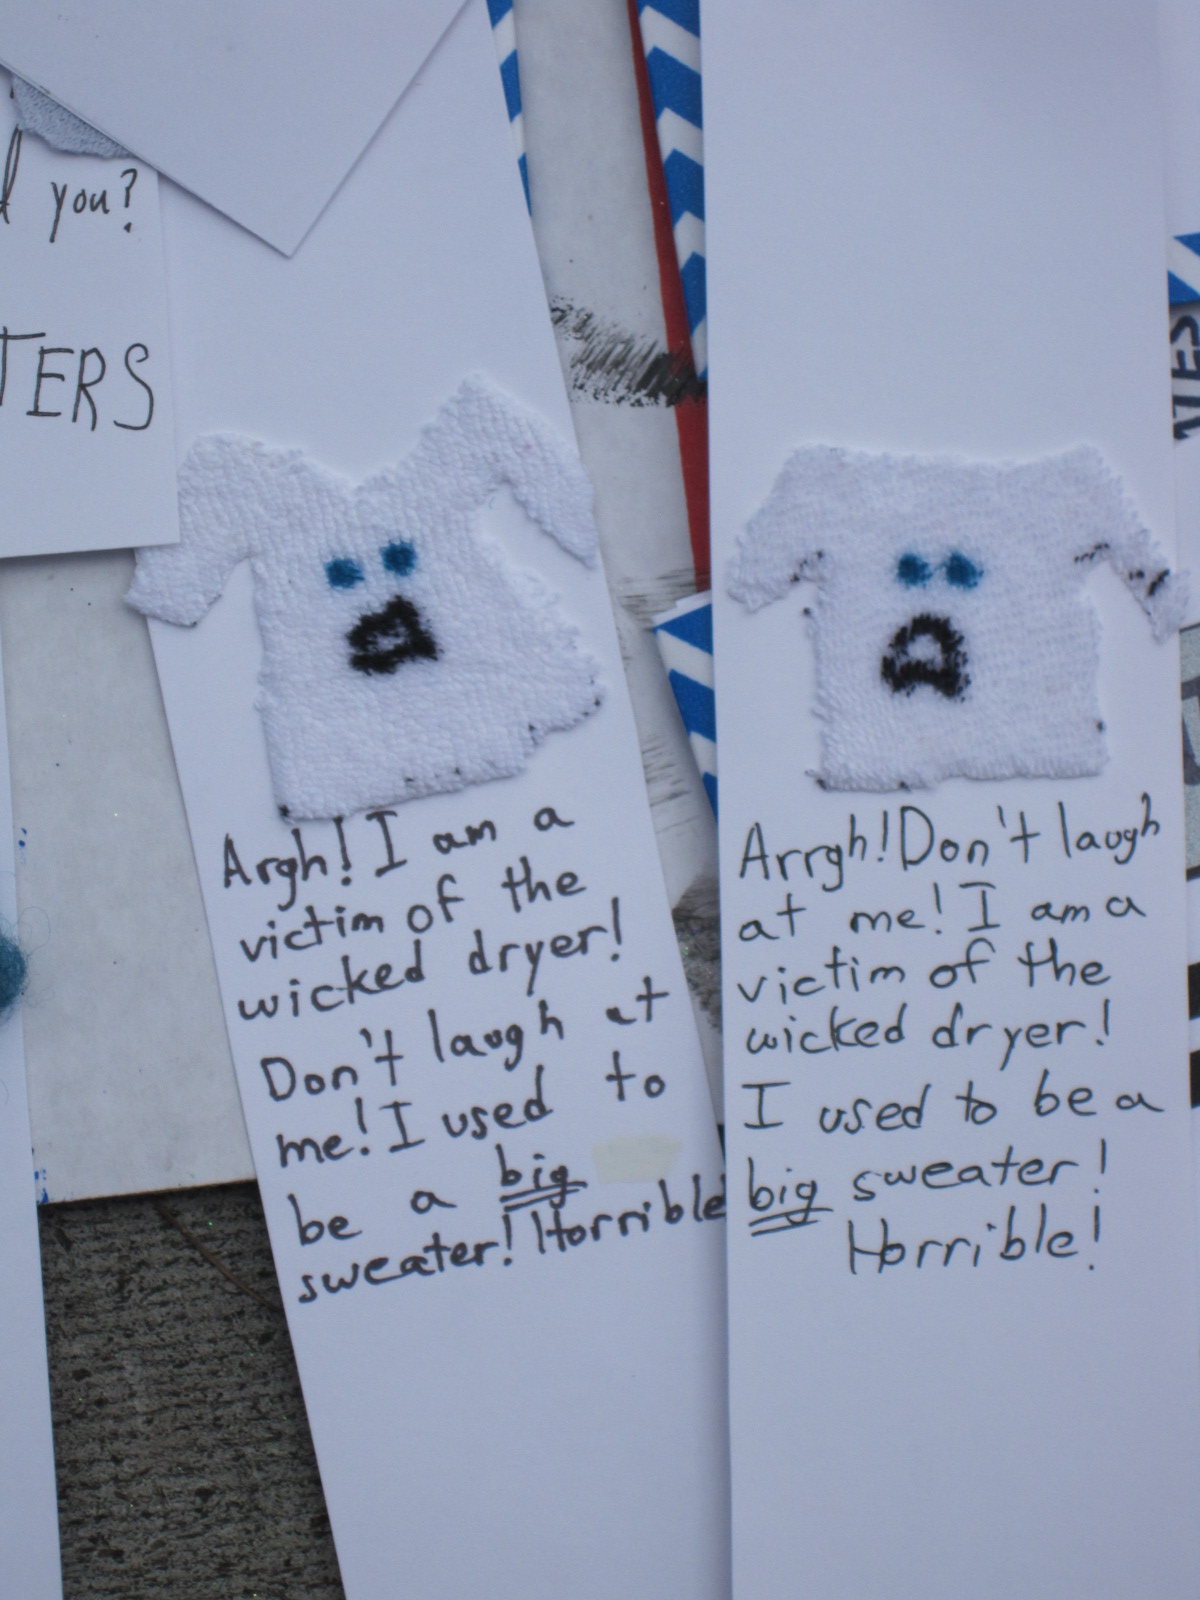 you?
TERS
Argh! I am a
victim of the
wicked dryer!
Don't laugh at
me! I used to
be a big
sweater! Horrible
Arrgh! Don't laugh
at me! I am a
victim of the
wicked dryer!
I used to be a
big sweater!
Horrible!